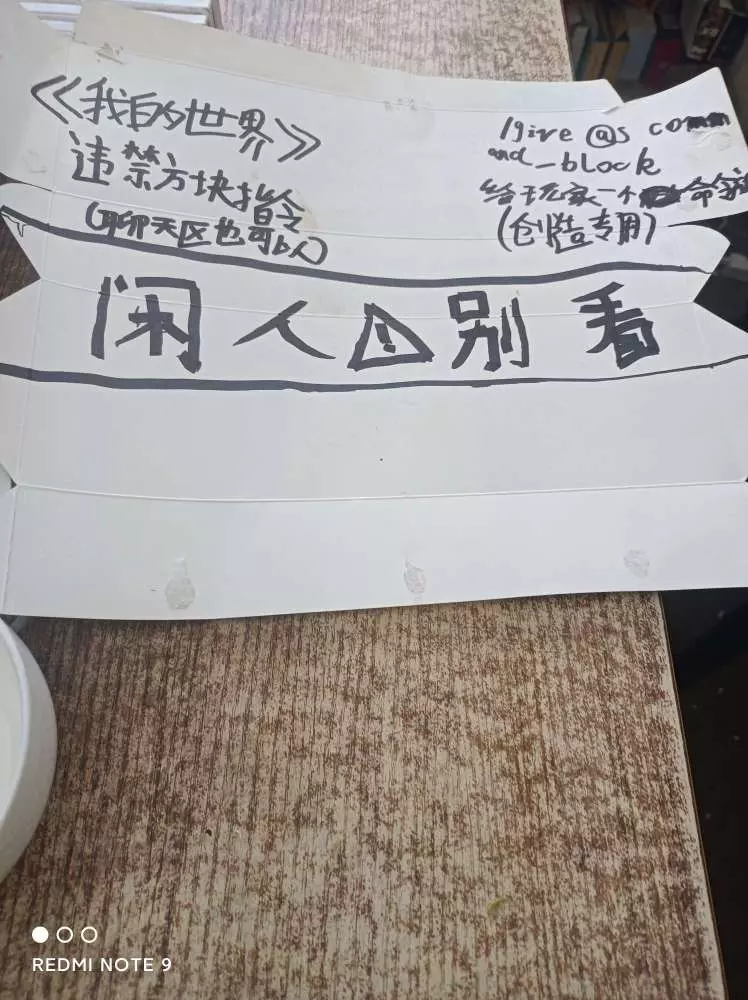 《我的世界》
违禁方块指令
(聊天区也可以)
/give @s comm
and_block
给玩家一个命令
(创造专用)
闲人⚠别看
REDMI NOTE 9